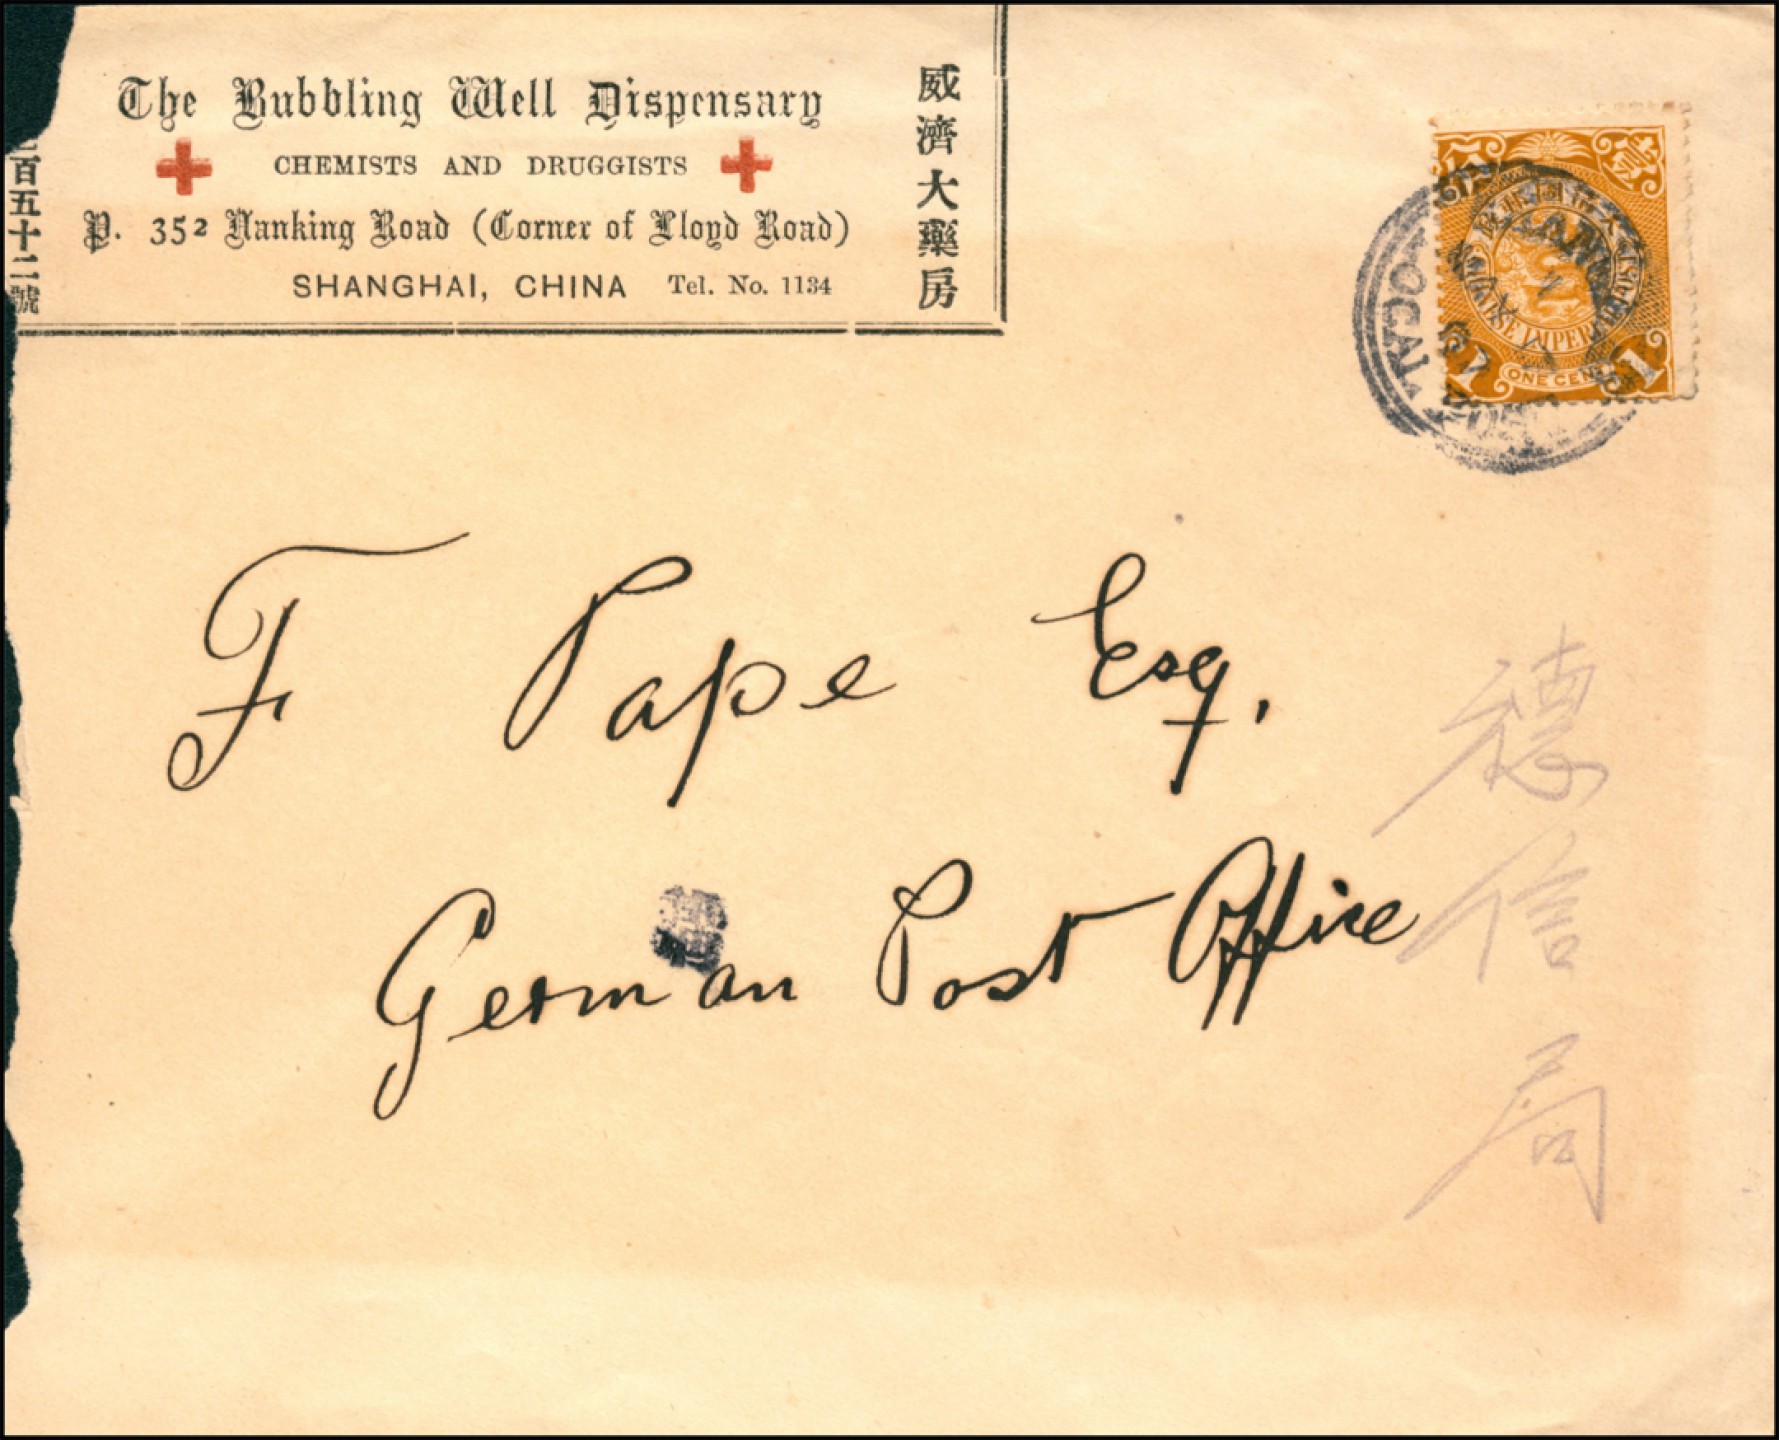 The Bubbling Well Dispensary
CHEMISTS AND DRUGGISTS
P. 352 Nanking Road (Corner of Lloyd Road)
SHANGHAI, CHINA Tel. No. 1134
威濟大藥房
百五十二號
ONE CENT
1 1
LOCAL
F Pape Esq.
German Post Office
德信局